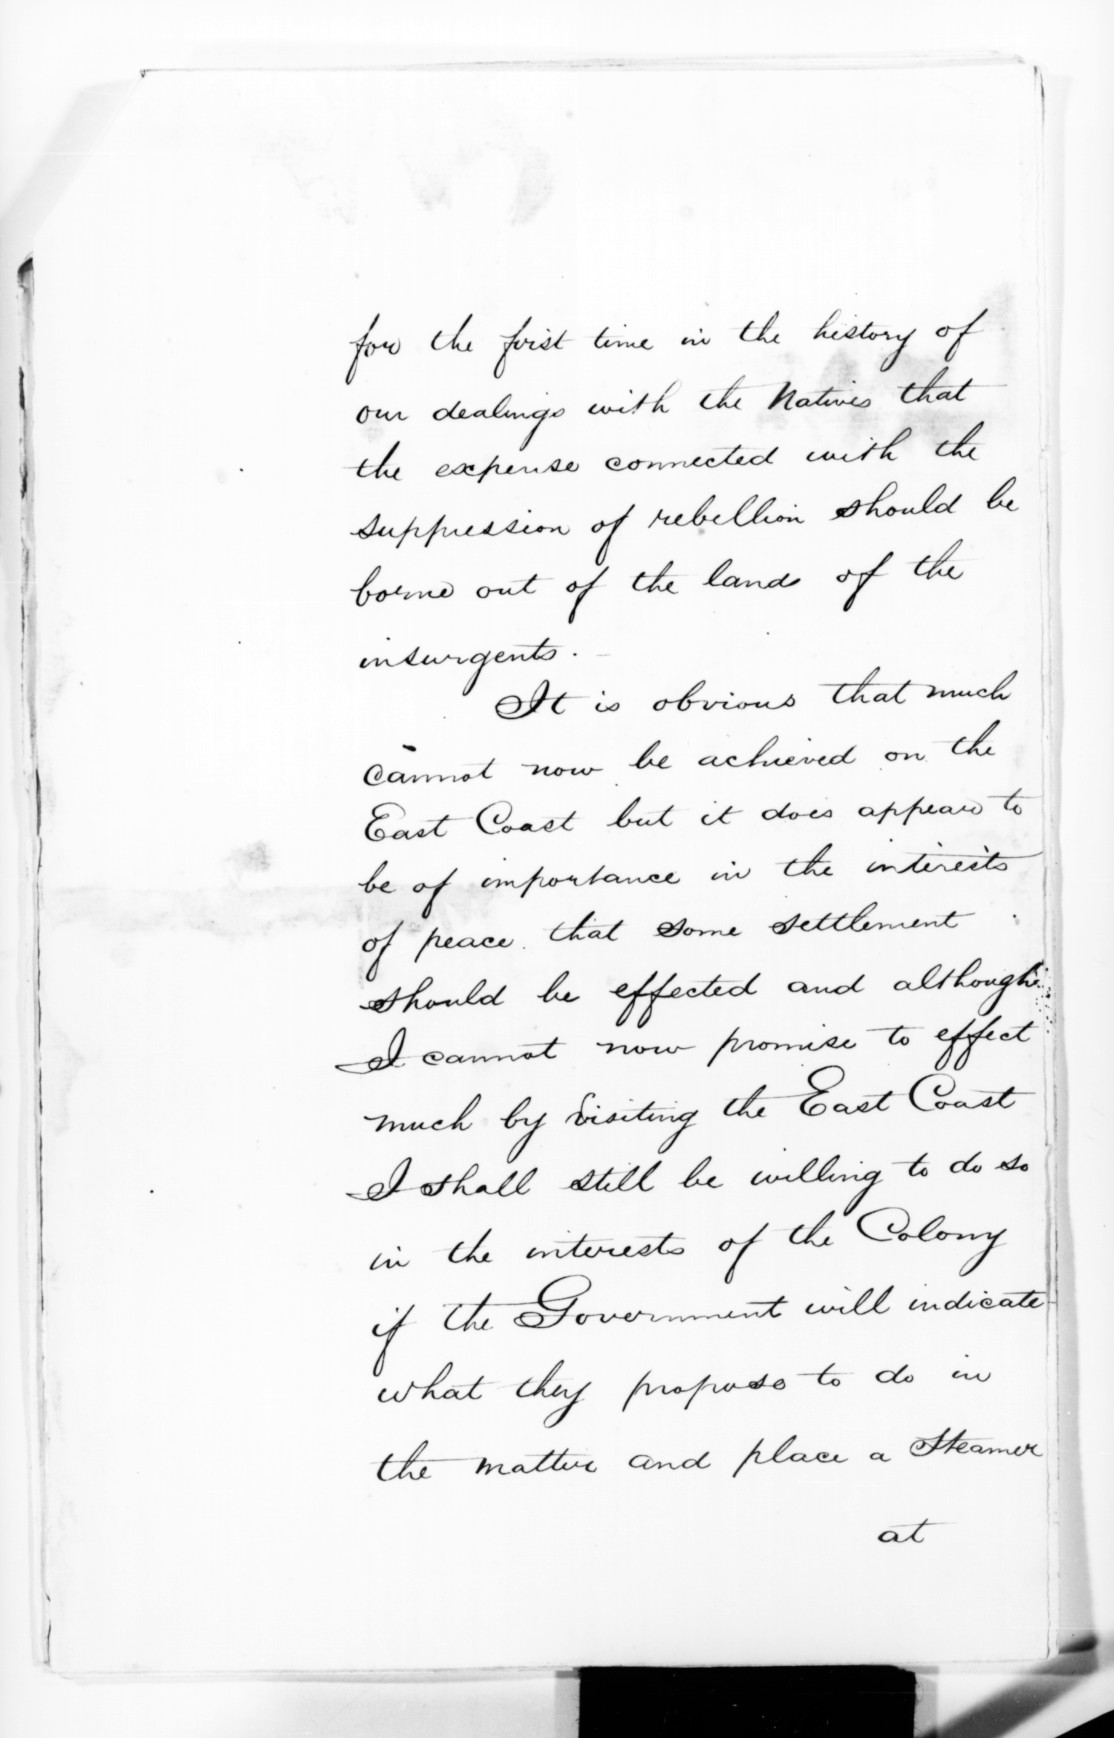 for the first time in the history of
our dealings with the Natives that
the expense connected with the
suppression of rebellion should be
borne out of the lands of the
insurgents.
It is obvious that much
cannot now be achieved on the
East Coast but it does appear to
be of importance in the interests
of peace that some settlement
should be effected and although
I cannot now promise to effect
much by visiting the East Coast
I shall still be willing to do so
in the interests of the Colony
if the Government will indicate
what they propose to do in
the matter and place a Steamer
at